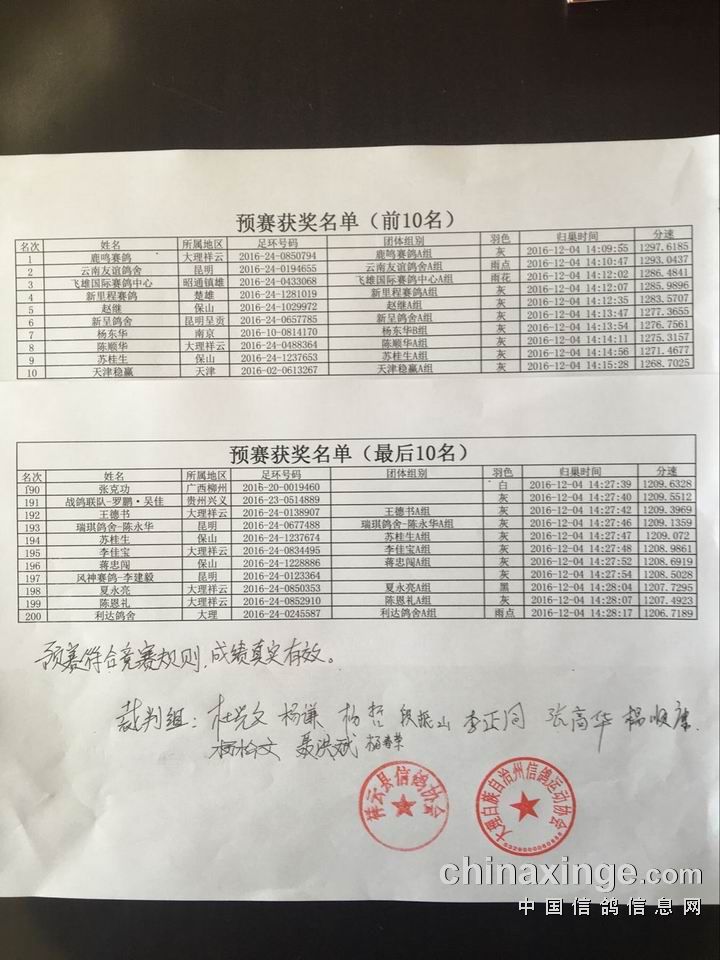 预赛获奖名单（前10名）
名次 姓名 所属地区 足环号码 团体组别 羽色 归巢时间 分速
1 鹿鸣赛鸽 大理祥云 2016-24-0850794 鹿鸣赛鸽A组 灰 2016-12-04 14:09:55 1297.6185
2 云南友谊鸽舍 昆明 2016-24-0194655 云南友谊鸽舍A组 雨点 2016-12-04 14:10:47 1293.0437
3 飞雄国际赛鸽中心 昭通镇雄 2016-24-0433068 飞雄国际赛鸽中心A组 雨花 2016-12-04 14:12:02 1286.4841
4 新里程赛鸽 楚雄 2016-24-1281019 新里程赛鸽A组 灰 2016-12-04 14:12:07 1285.9896
5 赵继 保山 2016-24-1029972 赵继A组 灰 2016-12-04 14:12:35 1283.5707
6 新呈鸽舍 昆明呈贡 2016-24-0657785 新呈鸽舍A组 灰 2016-12-04 14:13:47 1277.3655
7 杨东华 南京 2016-10-0814170 杨东华B组 灰 2016-12-04 14:13:54 1276.7561
8 陈顺华 大理祥云 2016-24-0488364 陈顺华A组 灰 2016-12-04 14:14:11 1275.3157
9 苏桂生 保山 2016-24-1237653 苏桂生A组 灰 2016-12-04 14:14:56 1271.4677
10 天津稳赢 天津 2016-02-0613267 天津稳赢A组 灰 2016-12-04 14:15:28 1268.7025
预赛获奖名单（最后10名）
名次 姓名 所属地区 足环号码 团体组别 羽色 归巢时间 分速
190 张克功 广西柳州 2016-20-0019460 白 2016-12-04 14:27:39 1209.6328
191 战鸽联队-罗鹏·吴佳 贵州兴义 2016-23-0514889 灰 2016-12-04 14:27:40 1209.5512
192 王德书 大理祥云 2016-24-0138907 王德书A组 灰 2016-12-04 14:27:42 1209.3969
193 瑞琪鸽舍-陈永华 昆明 2016-24-0677488 瑞琪鸽舍-陈永华A组 灰 2016-12-04 14:27:46 1209.1359
194 苏桂生 保山 2016-24-1237674 苏桂生A组 灰 2016-12-04 14:27:47 1209.072
195 李佳宝 大理祥云 2016-24-0834495 李佳宝A组 灰 2016-12-04 14:27:48 1208.9861
196 蒋忠闯 保山 2016-24-1228886 蒋忠闯A组 灰 2016-12-04 14:27:52 1208.6919
197 风神赛鸽-李建毅 昆明 2016-24-0123364 灰 2016-12-04 14:27:54 1208.5028
198 夏永亮 大理祥云 2016-24-0850353 夏永亮A组 黑 2016-12-04 14:28:04 1207.7295
199 陈恩礼 大理祥云 2016-24-0852910 陈恩礼A组 灰 2016-12-04 14:28:07 1207.4923
200 利达鸽舍 大理 2016-24-0245587 利达鸽舍A组 雨点 2016-12-04 14:28:17 1206.7189
预赛符合竞赛规则，成绩真实有效。
裁判组：杜兴文 杨谦 杨哲 段振山 李正闰 张高华 杨顺康
杨柏文 聂洪斌 杨春荣
祥云县信鸽协会
大理白族自治州信鸽运动协会
chinaxinge.com
中国信鸽信息网